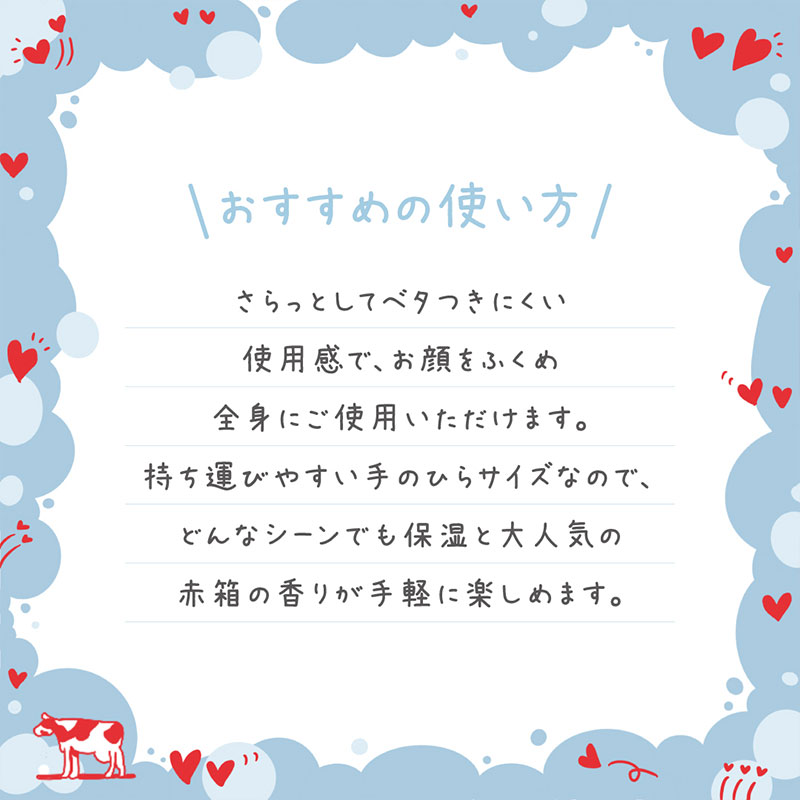 \おすすめの使い方/
さらっとしてベタつきにくい
使用感で、お顔をふくめ
全身にご使用いただけます。
持ち運びやすい手のひらサイズなので、
どんなシーンでも保湿と大人気の
赤箱の香りが手軽に楽しめます。